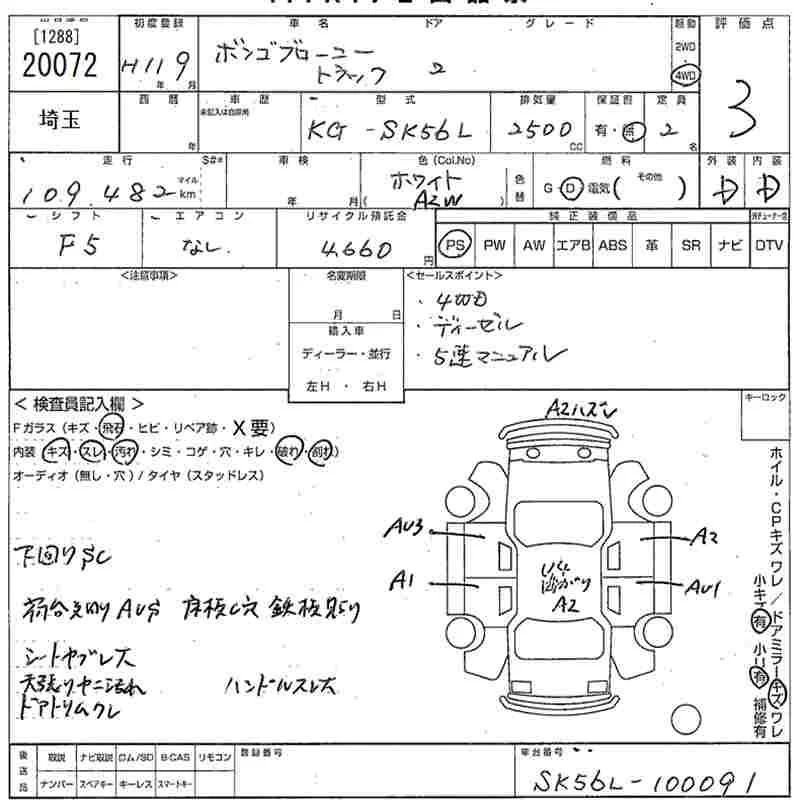 出品番号
[1288]
20072
初度登録
H11 9
年 月
車名
ボンゴブローニー
トラック
ドア
2
グレード
駆動
2WD
4WD
評価点
3
埼玉
西暦
年
車歴
未記入は自家用
型式
KG-SK56L
排気量
2500
CC
保証書
有・無
定員
2
名
走行
109,482
マイル
km
S#*
車検
年 月
色(Col.No)
ホワイト
( A2W )
色替
燃料
G・D・電気( その他 )
外装
D
内装
D
シフト
F5
エアコン
なし
リサイクル預託金
4,660
円
純正装備品
PS PW AW エアB ABS 革 SR ナビ DTV
<注意事項>
名変期限
月 日
輸入車
ディーラー・並行
左H・右H
<セールスポイント>
・4WD
・ディーゼル
・5速マニュアル
<検査員記入欄>
Fガラス(キズ・飛石・ヒビ・リペア跡・X要)
内装(キズ・スレ・汚れ・シミ・コゲ・穴・キレ・破れ・割れ)
オーディオ(無し・穴)/タイヤ(スタッドレス)
下回りSC
荷台 AUS 床板し穴 鉄板貼り
シートヤブレ大
天張りヤニ汚れ
ハンドルスレ大
ドアトリムワレ
キーロック
A2ハズレ
AU3
A2
A1
AU1
A2
ホイル・CPキズワレ/ドアミラーキズワレ
小キズ有 小凹有 補修有
後送品
取説 ナビ取説 ロム/SD B-CAS リモコン
ナンバー スペアキー キーレス スマートキー
登録番号
車台番号
SK56L-100091